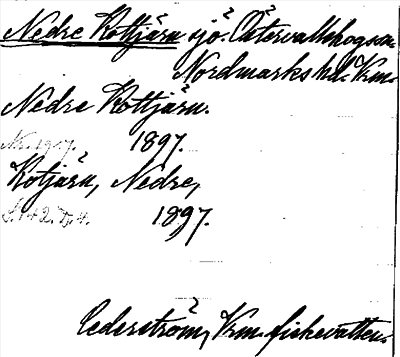 Nedre Kottjärn sjö. Östervallskogssn.
Nordmarks hd. Vrm.
Nedre Kottjärn.
1897.
Kotjärn, Nedre,
S. 142. T. 4. 1897.
Cederström, Vrm. fiskevatten.